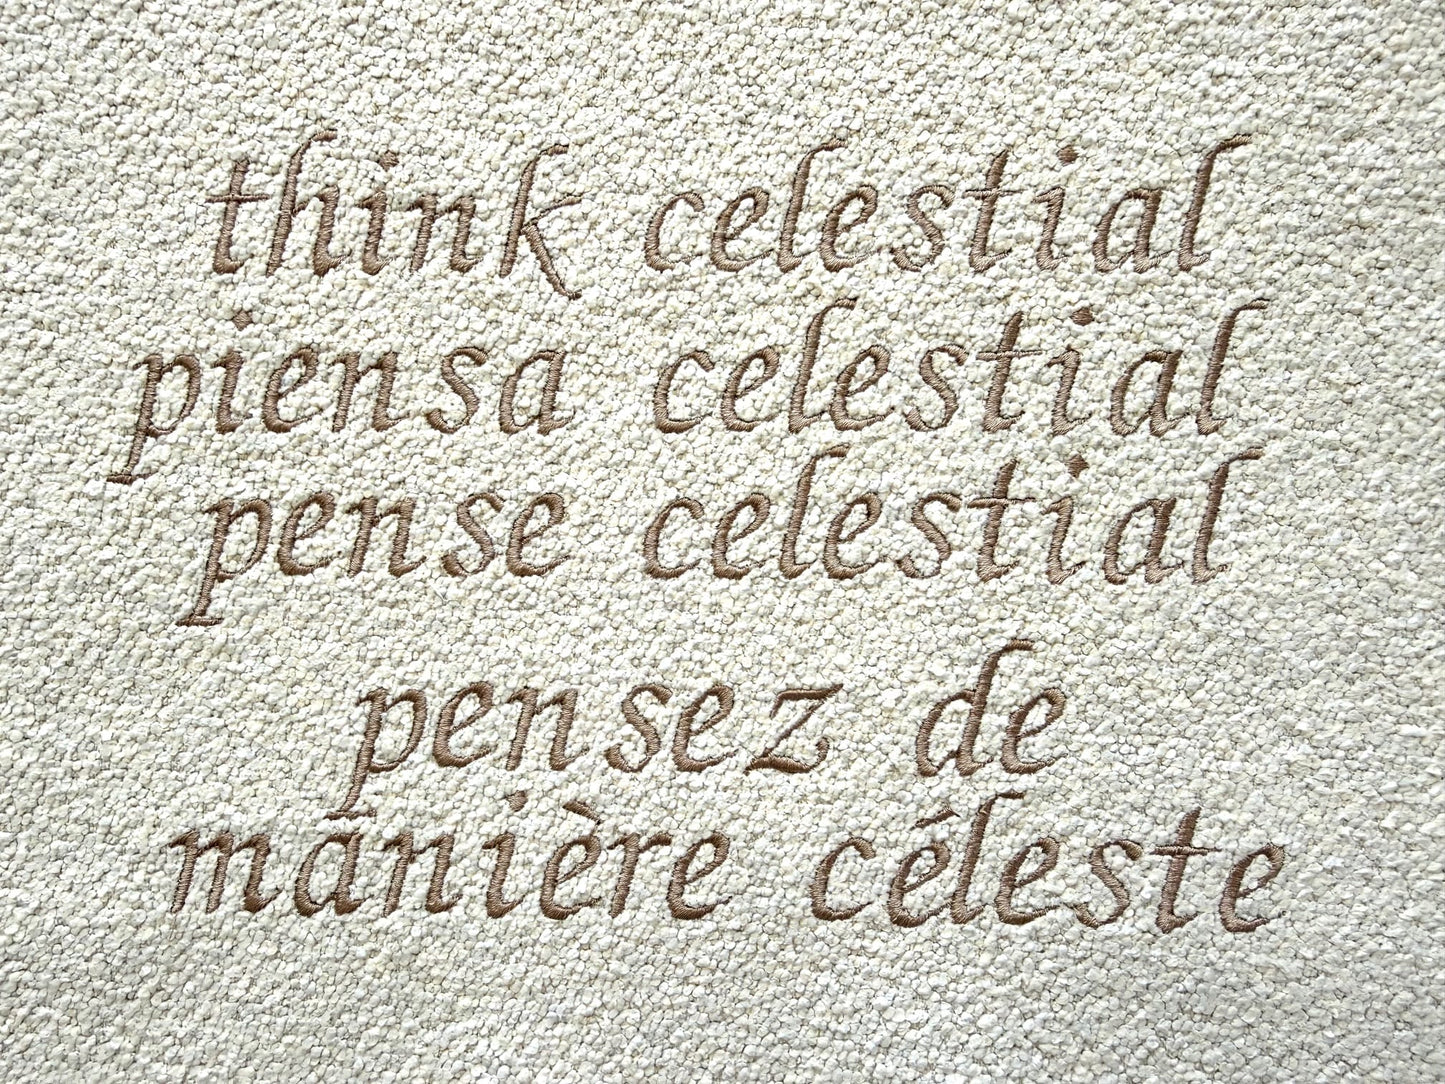 think celestial
piensa celestial
pense celestial
pensez de
manière céleste